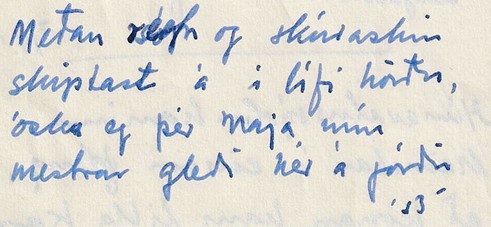 Meðan regn og skúraskin
skiptast á í lífi hörðu,
óska eg þér Maja mín
mestrar gleði hér á jörðu
'53